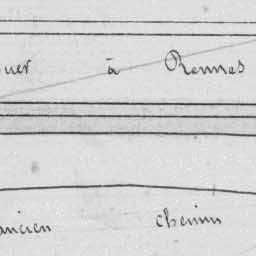 uer à Rennes
ancien chemin